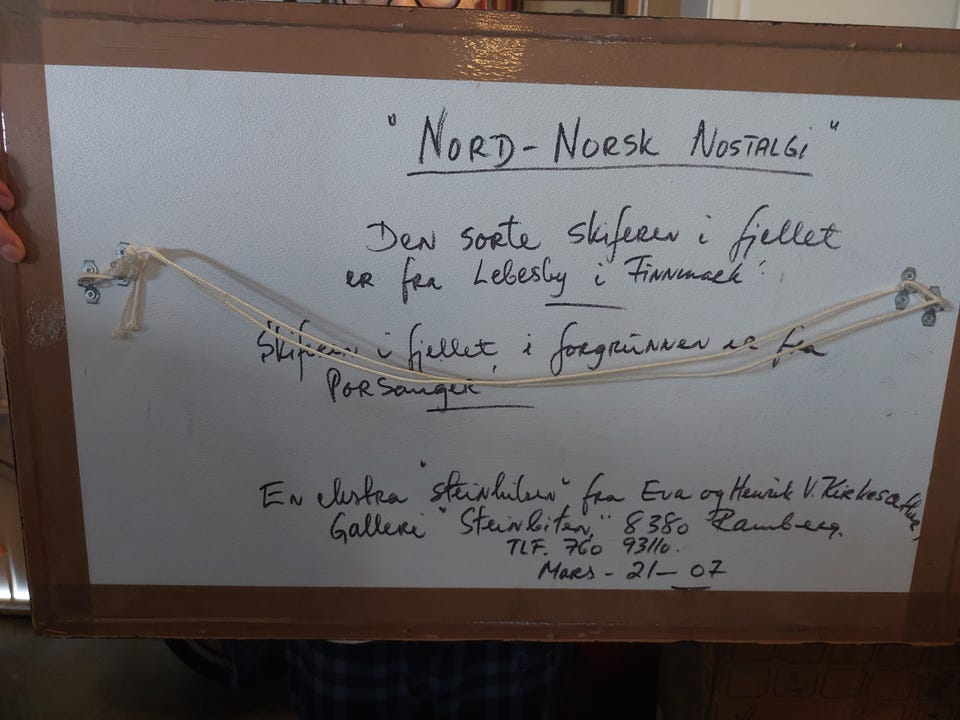 "NORD-NORSK NOSTALGI"
Den sorte skiferen i fjellet
er fra Lebesby i Finnmark.
Skiferen i fjellet, i forgrünnen er fra
Porsanger.
En ekstra "steinhilsen" fra Eva og Henrik V.
Galleri "Steinbiten," 8380 Ramberg.
TLF. 760 93110.
Mars - 21 - 07